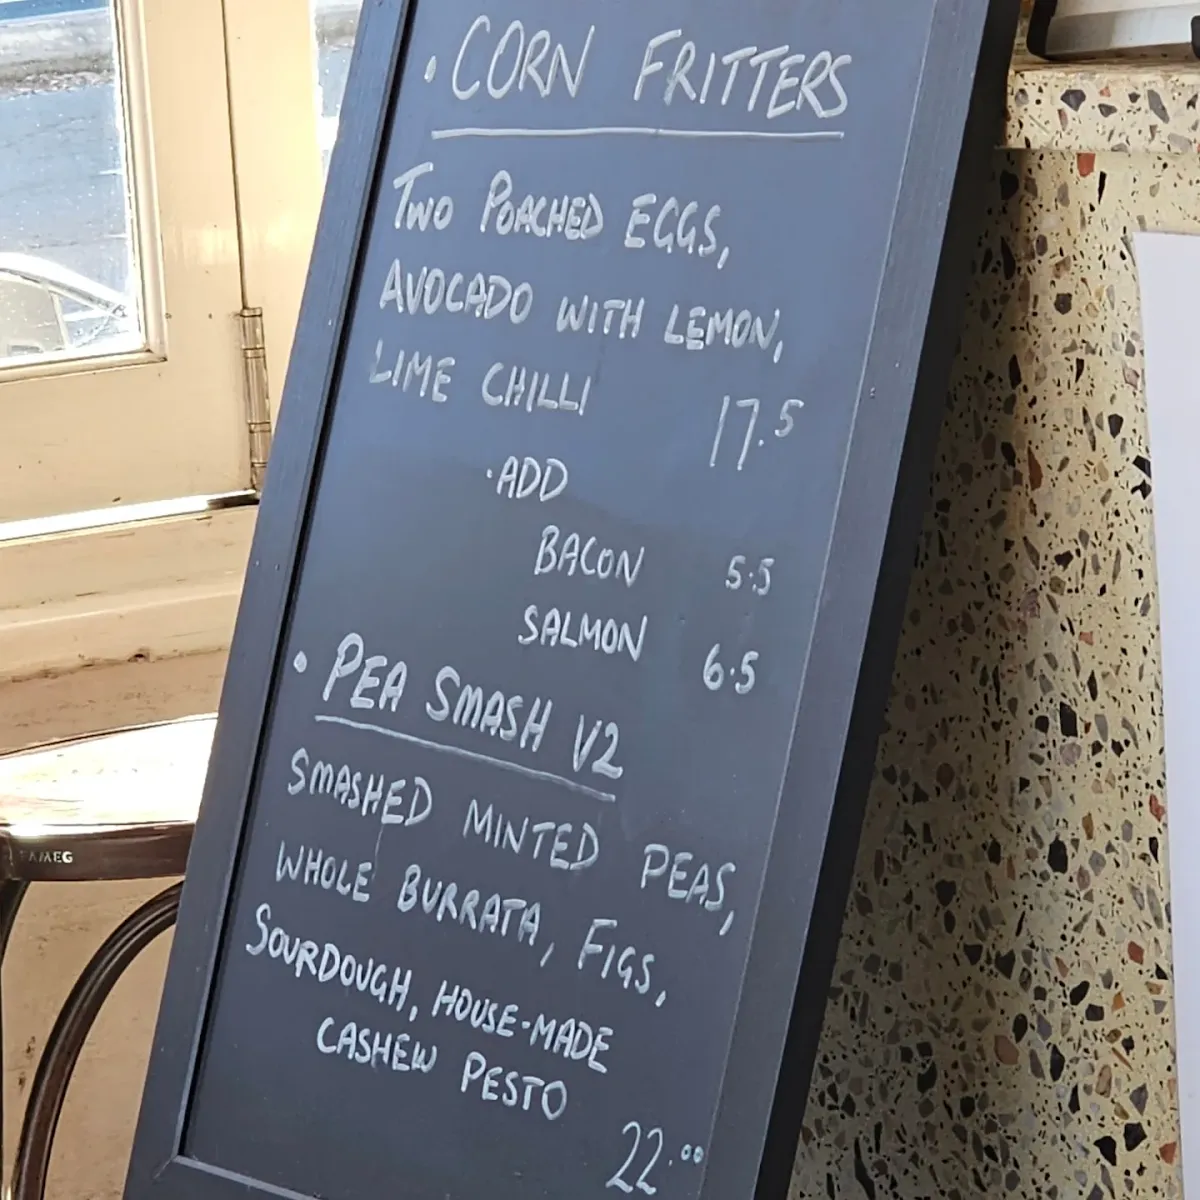 • CORN FRITTERS
TWO POACHED EGGS,
AVOCADO WITH LEMON,
LIME CHILLI 17.5
• ADD
BACON 5.5
SALMON 6.5
• PEA SMASH V2
SMASHED MINTED PEAS,
WHOLE BURRATA, FIGS,
SOURDOUGH, HOUSE-MADE
CASHEW PESTO
22.00